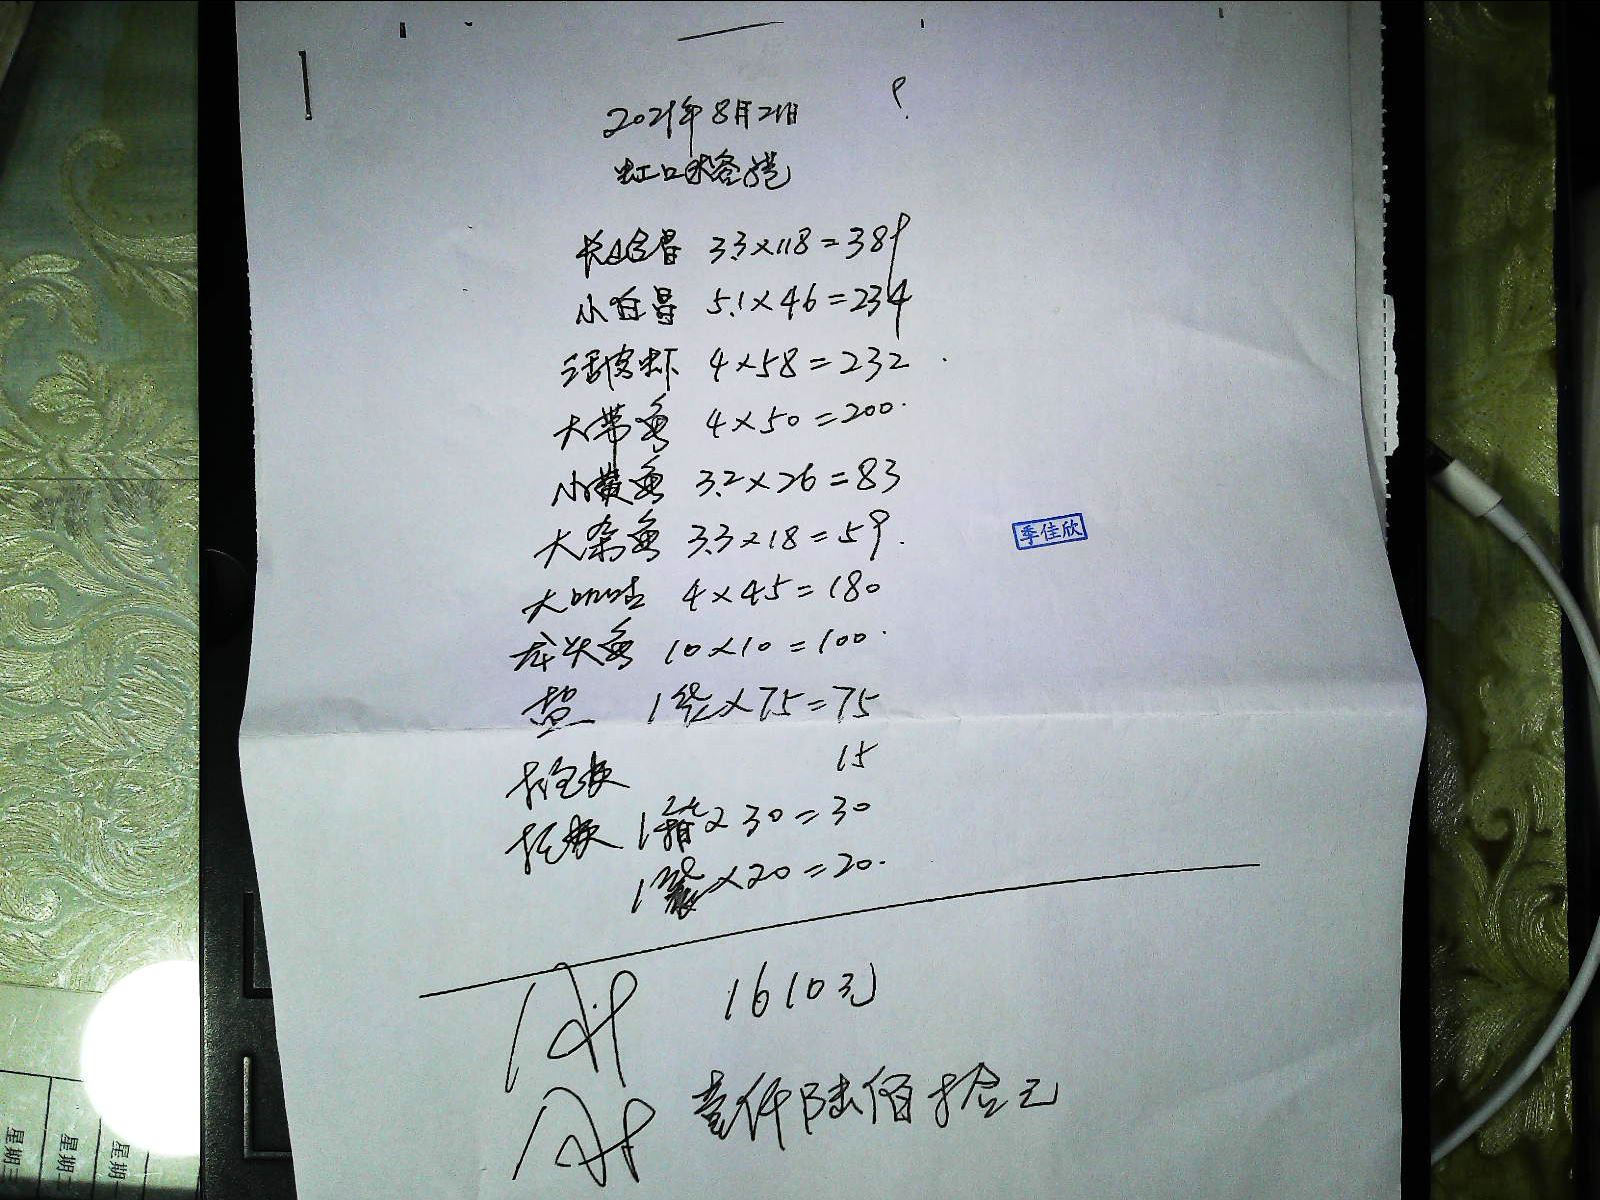 2021年8月21日
虹口
3.3×118=389
小白昌 5.1×46=234
活皮虾 4×58=232
大带鱼 4×50=200
小黄鱼 3.2×26=83
大杂鱼 3.3×18=59
季佳欣
大 4×45=180
龙头鱼 10×10=100
盐 1袋×75=75
15
1箱×30=30
1袋×20=20
合计 1610元
合计 壹仟陆佰拾元
星期三
星期二
星期一